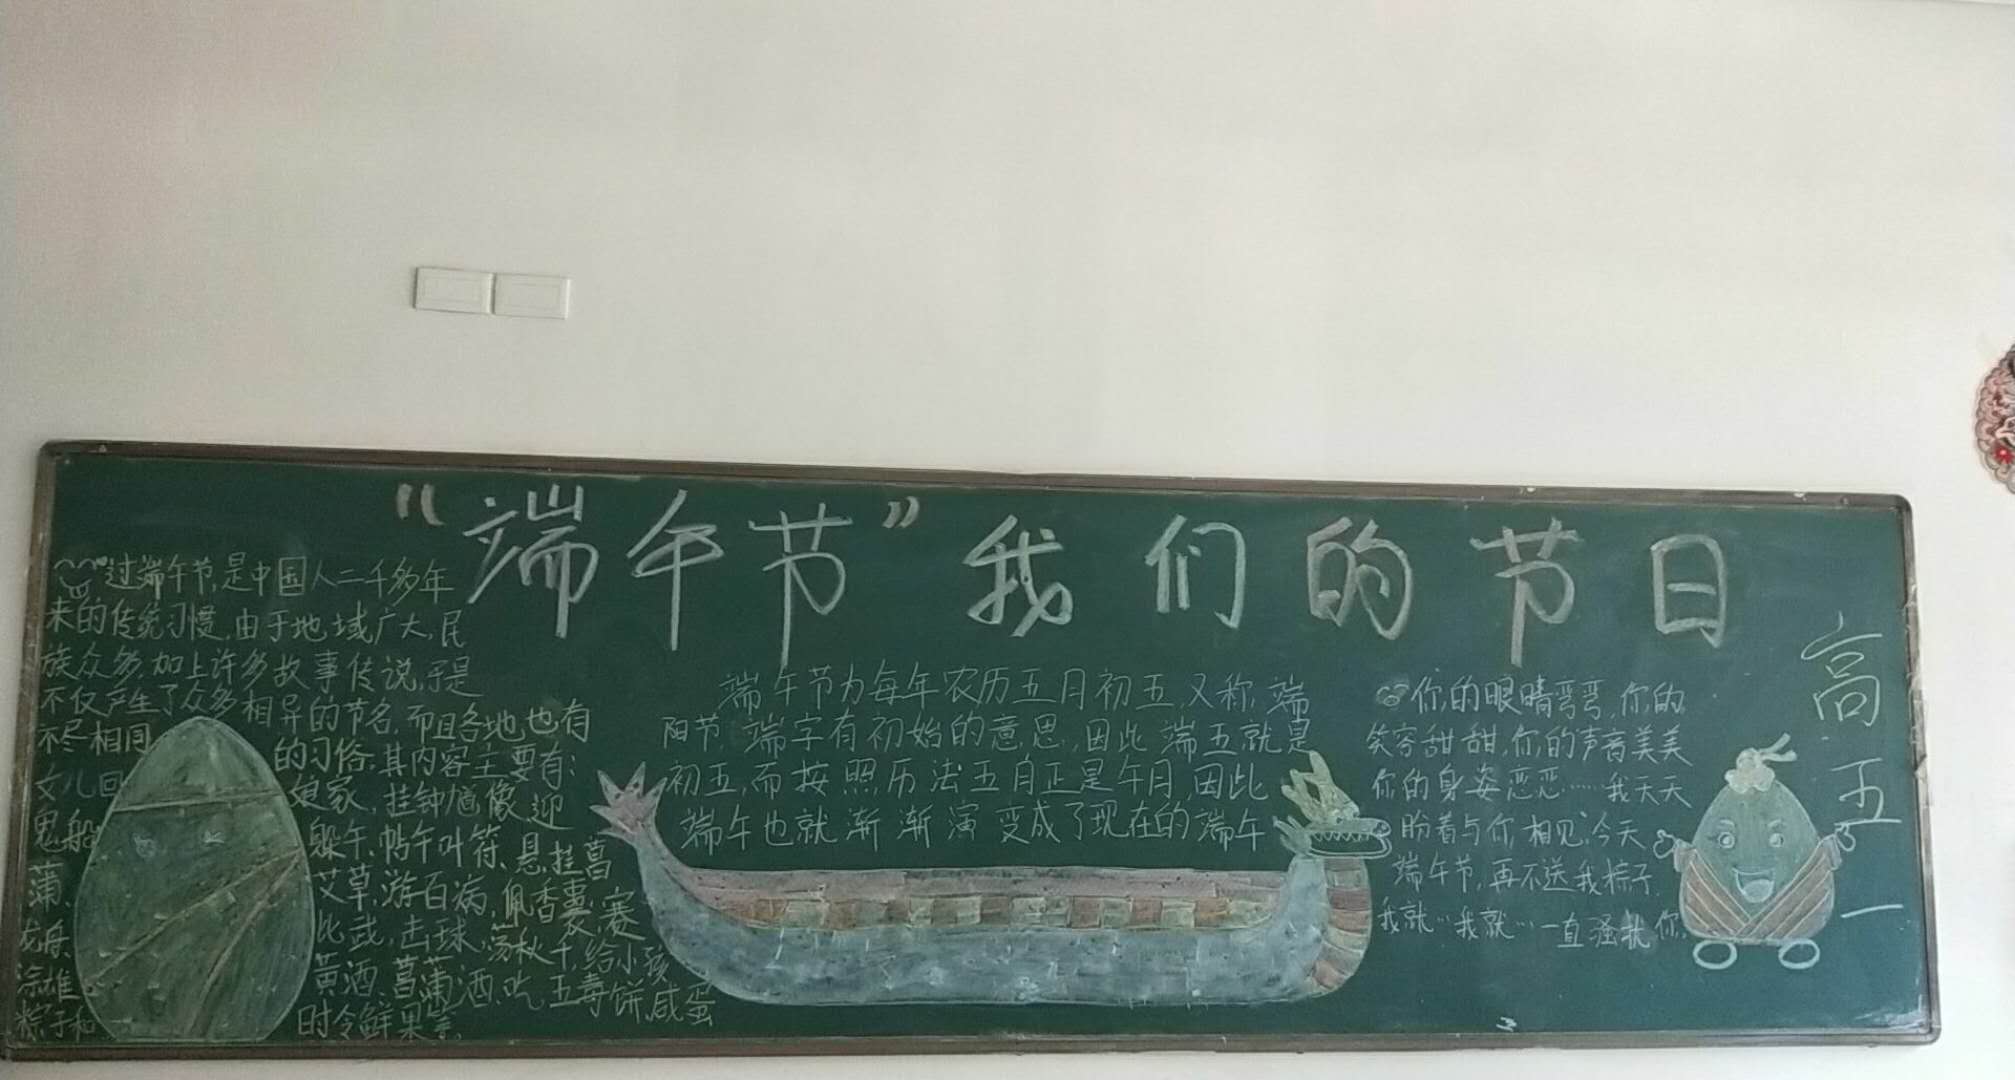 “端午节”我们的节日
过端午节,是中国人二千多年
来的传统习惯,由于地域广大,民
族众多,加上许多故事传说,于是
不仅产生了众多相异的节名,而且各地也有
不尽相同的习俗.其内容主要有:
女儿回娘家,挂钟馗像,迎
鬼船躲午,帖午叶符、悬挂菖
蒲、艾草,游百病,佩香囊,赛
龙舟、比武,击球,荡秋千,给小孩
涂雄黄酒、菖蒲酒、吃五毒饼、咸蛋
粽子和时令鲜果等
端午节为每年农历五月初五,又称,端
阳节.端字有初始的意思,因此端五就是
初五,而按照历法五月正是午月,因此
端午也就渐渐演变成了现在的端午
你的眼睛弯弯,你的
笑容甜甜,你的声音美美
你的身姿恋恋……我天天
盼着与你相见,今天
端午节,再不送我粽子
我就…我就…一直骚扰你.
高五一